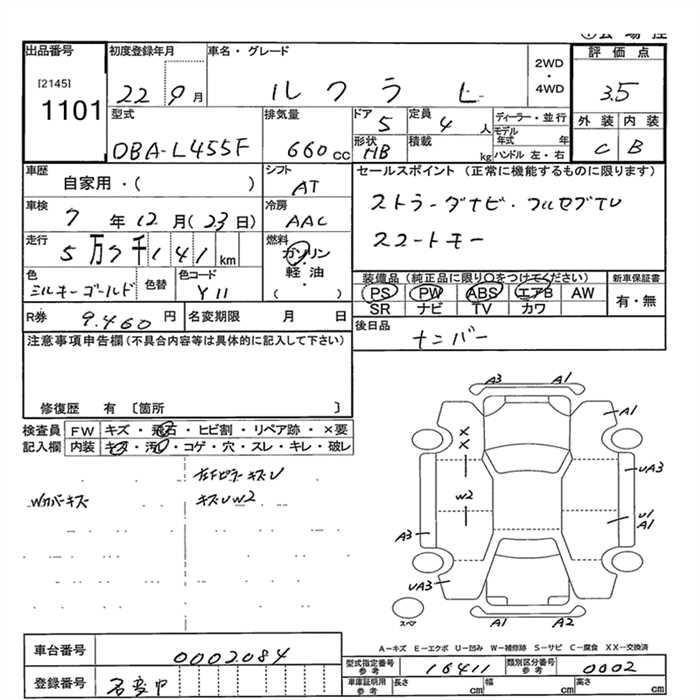 出品番号
[2145]
1101
初度登録年月
22 9 月
車名・グレード
ルクラ L
2WD
・
4WD
評価点
3.5
型式
DBA-L455F
排気量
660 cc
ドア
5
形状
HB
定員
4 人
積載
kg
ディーラー・並行
モデル年式 年
ハンドル 左・右
外装
内装
C
B
車歴
自家用・( )
シフト
AT
セールスポイント (正常に機能するものに限ります)
ストラーダナビ・フルセグTV
スマートキー
車検
7 年 12 月 (23日)
冷房
AAC
走行
5 万 7 千 1 4 1 km
燃料
ガソリン
・
軽油
・
( )
色
ミルキーゴールド
色替
色コード
Y11
装備品 (純正品に限り○をつけてください)
PS PW ABS エアB AW
SR ナビ TV カワ
新車保証書
有・無
R券
9.460 円
名変期限 月 日
後日品
ナンバー
注意事項申告欄(不具合内容等は具体的に記入して下さい)
修復歴 有 〔箇所 〕
検査員
記入欄
FW
キズ・飛石・ヒビ割・リペア跡・×要
内装
キズ・汚レ・コゲ・穴・スレ・キレ・破レ
左FピラーキズU
Wカバーキズ
キズUW2
A3 A1
A1
X
X
UA3
W2
U1
A1
A3
UA3
スペア
A1 A2
A−キズ E−エクボ U−凹み W−補修跡 S−サビ C−腐食 XX−交換済
車台番号
0002084
型式指定番号
参考
16411
類別区分番号
参考
0002
登録番号
名変中
車庫証明用
参考
長さ cm
幅 cm
高さ cm